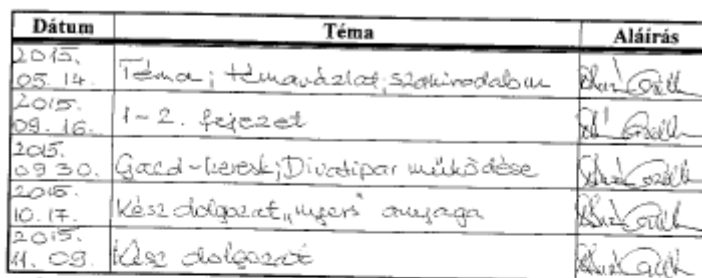 Dátum Téma Aláírás
2015.
05. 14. Téma; témavázlat; szakirodalom
2015.
09. 16. 1-2. fejezet
2015.
09 30. Gazd-keresk; Divatipar működése
2015.
10. 17. Kész dolgozat „nyers" anyaga
2015.
11. 09. Kész dolgozat